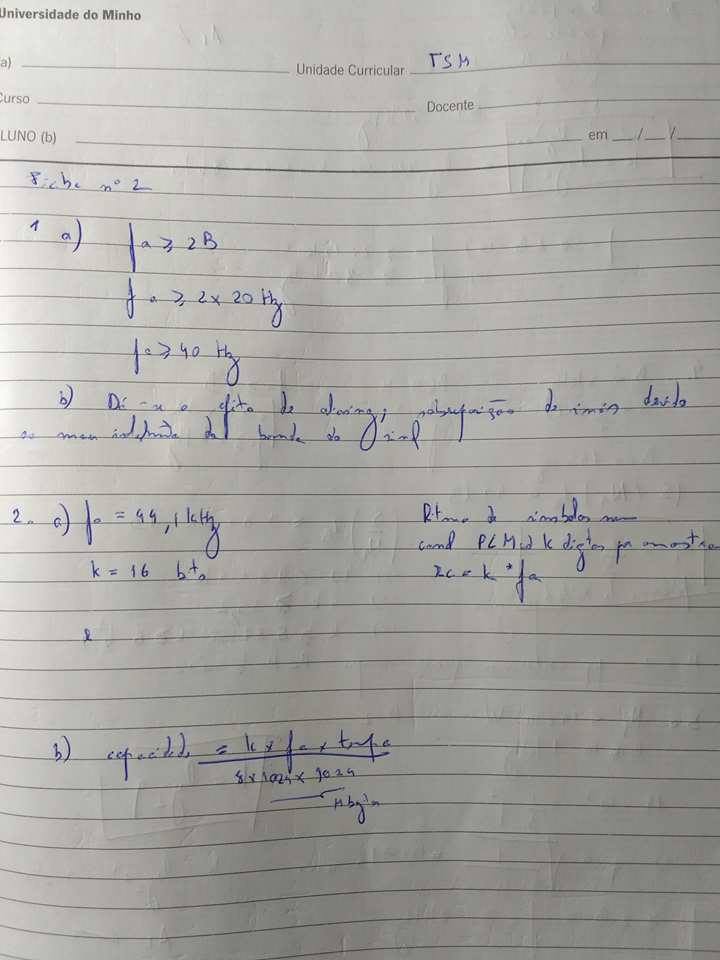 Universidade do Minho
a)
Unidade Curricular TSM
Curso
Docente
LUNO (b)
em / /
Ficha nº 2
1 a) fa ≥ 2B
fa ≥ 2 x 20 Hz
fa ≥ 40 Hz
b) Dá-se o efeito de aliasing, sobreposição de devido
ao da banda do sinal
2. a) fa = 44,1 kHz
k = 16 bits
Ritmo de símbolos num
canal PCM d k digitos por amostra
rc = k * fa
b) capacidade = k x fa x tempo
8 x 1024 x 1024
Mbytes